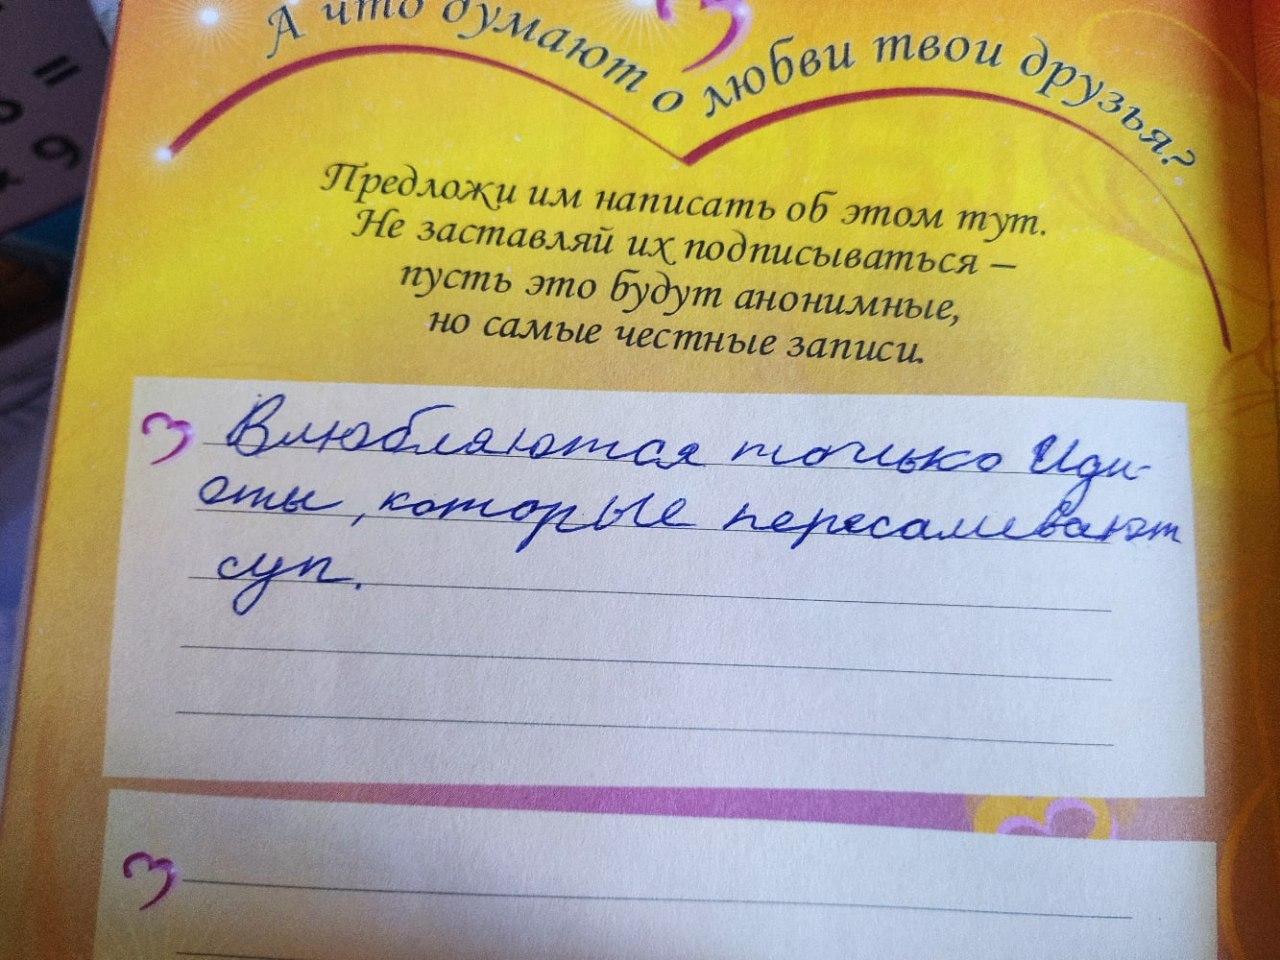 А что думают о любви твои друзья?
Предложи им написать об этом тут.
Не заставляй их подписываться –
пусть это будут анонимные,
но самые честные записи.
Влюбляются только Иди-
оты, которые пересаливают
суп.